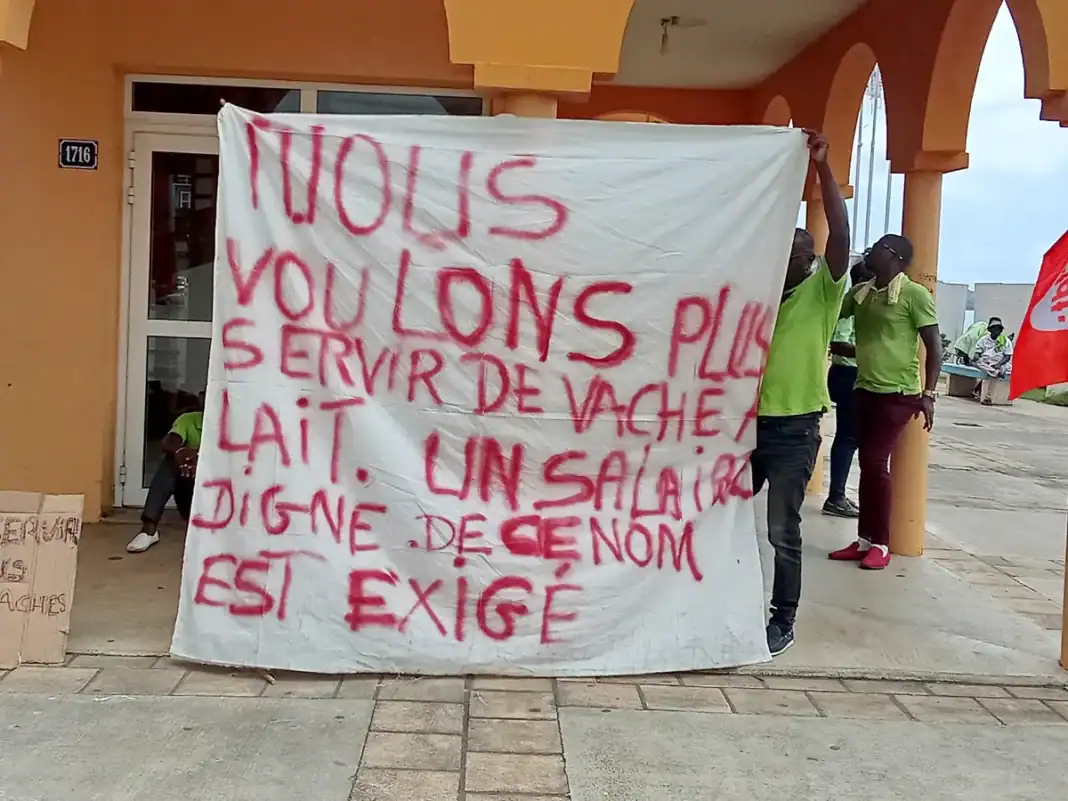 1716
NOUS
VOULONS PLUS
SERVIR DE VACHE A
LAIT. UN SALAIRE
DIGNE DE CE NOM
EST EXIGÉ
SERVIR
ACHES